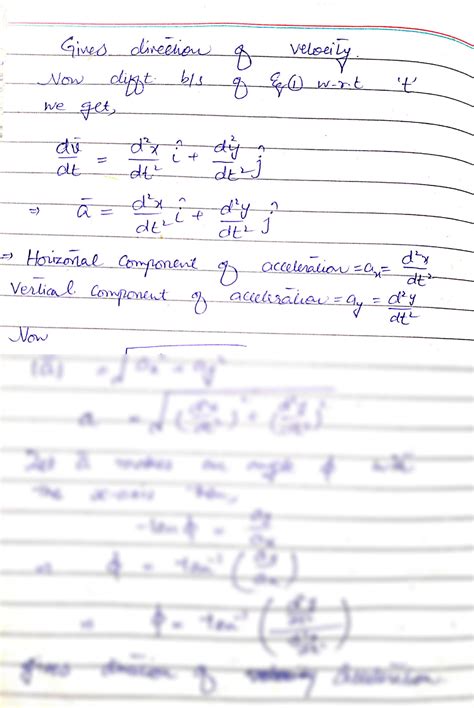 Gives direction of velocity.
Now diff. b/s of Eq(1) w.r.t 't'
we get,
dv̄/dt = d²x/dt² î + d²y/dt² ĵ
⇒ ā = d²x/dt² î + d²y/dt² ĵ
⇒ Horizontal component of acceleration = aₓ = d²x/dt²
Vertical component of acceleration = a_y = d²y/dt²
Now
|ā| = √(aₓ² + a_y²)
a = √((d²x/dt²)² + (d²y/dt²)²)
Let ā makes an angle ϕ with
the x-axis then,
tanϕ = a_y/aₓ
ϕ = tan⁻¹(a_y/aₓ)
ϕ = tan⁻¹((d²y/dt²)/(d²x/dt²))
gives direction of acceleration